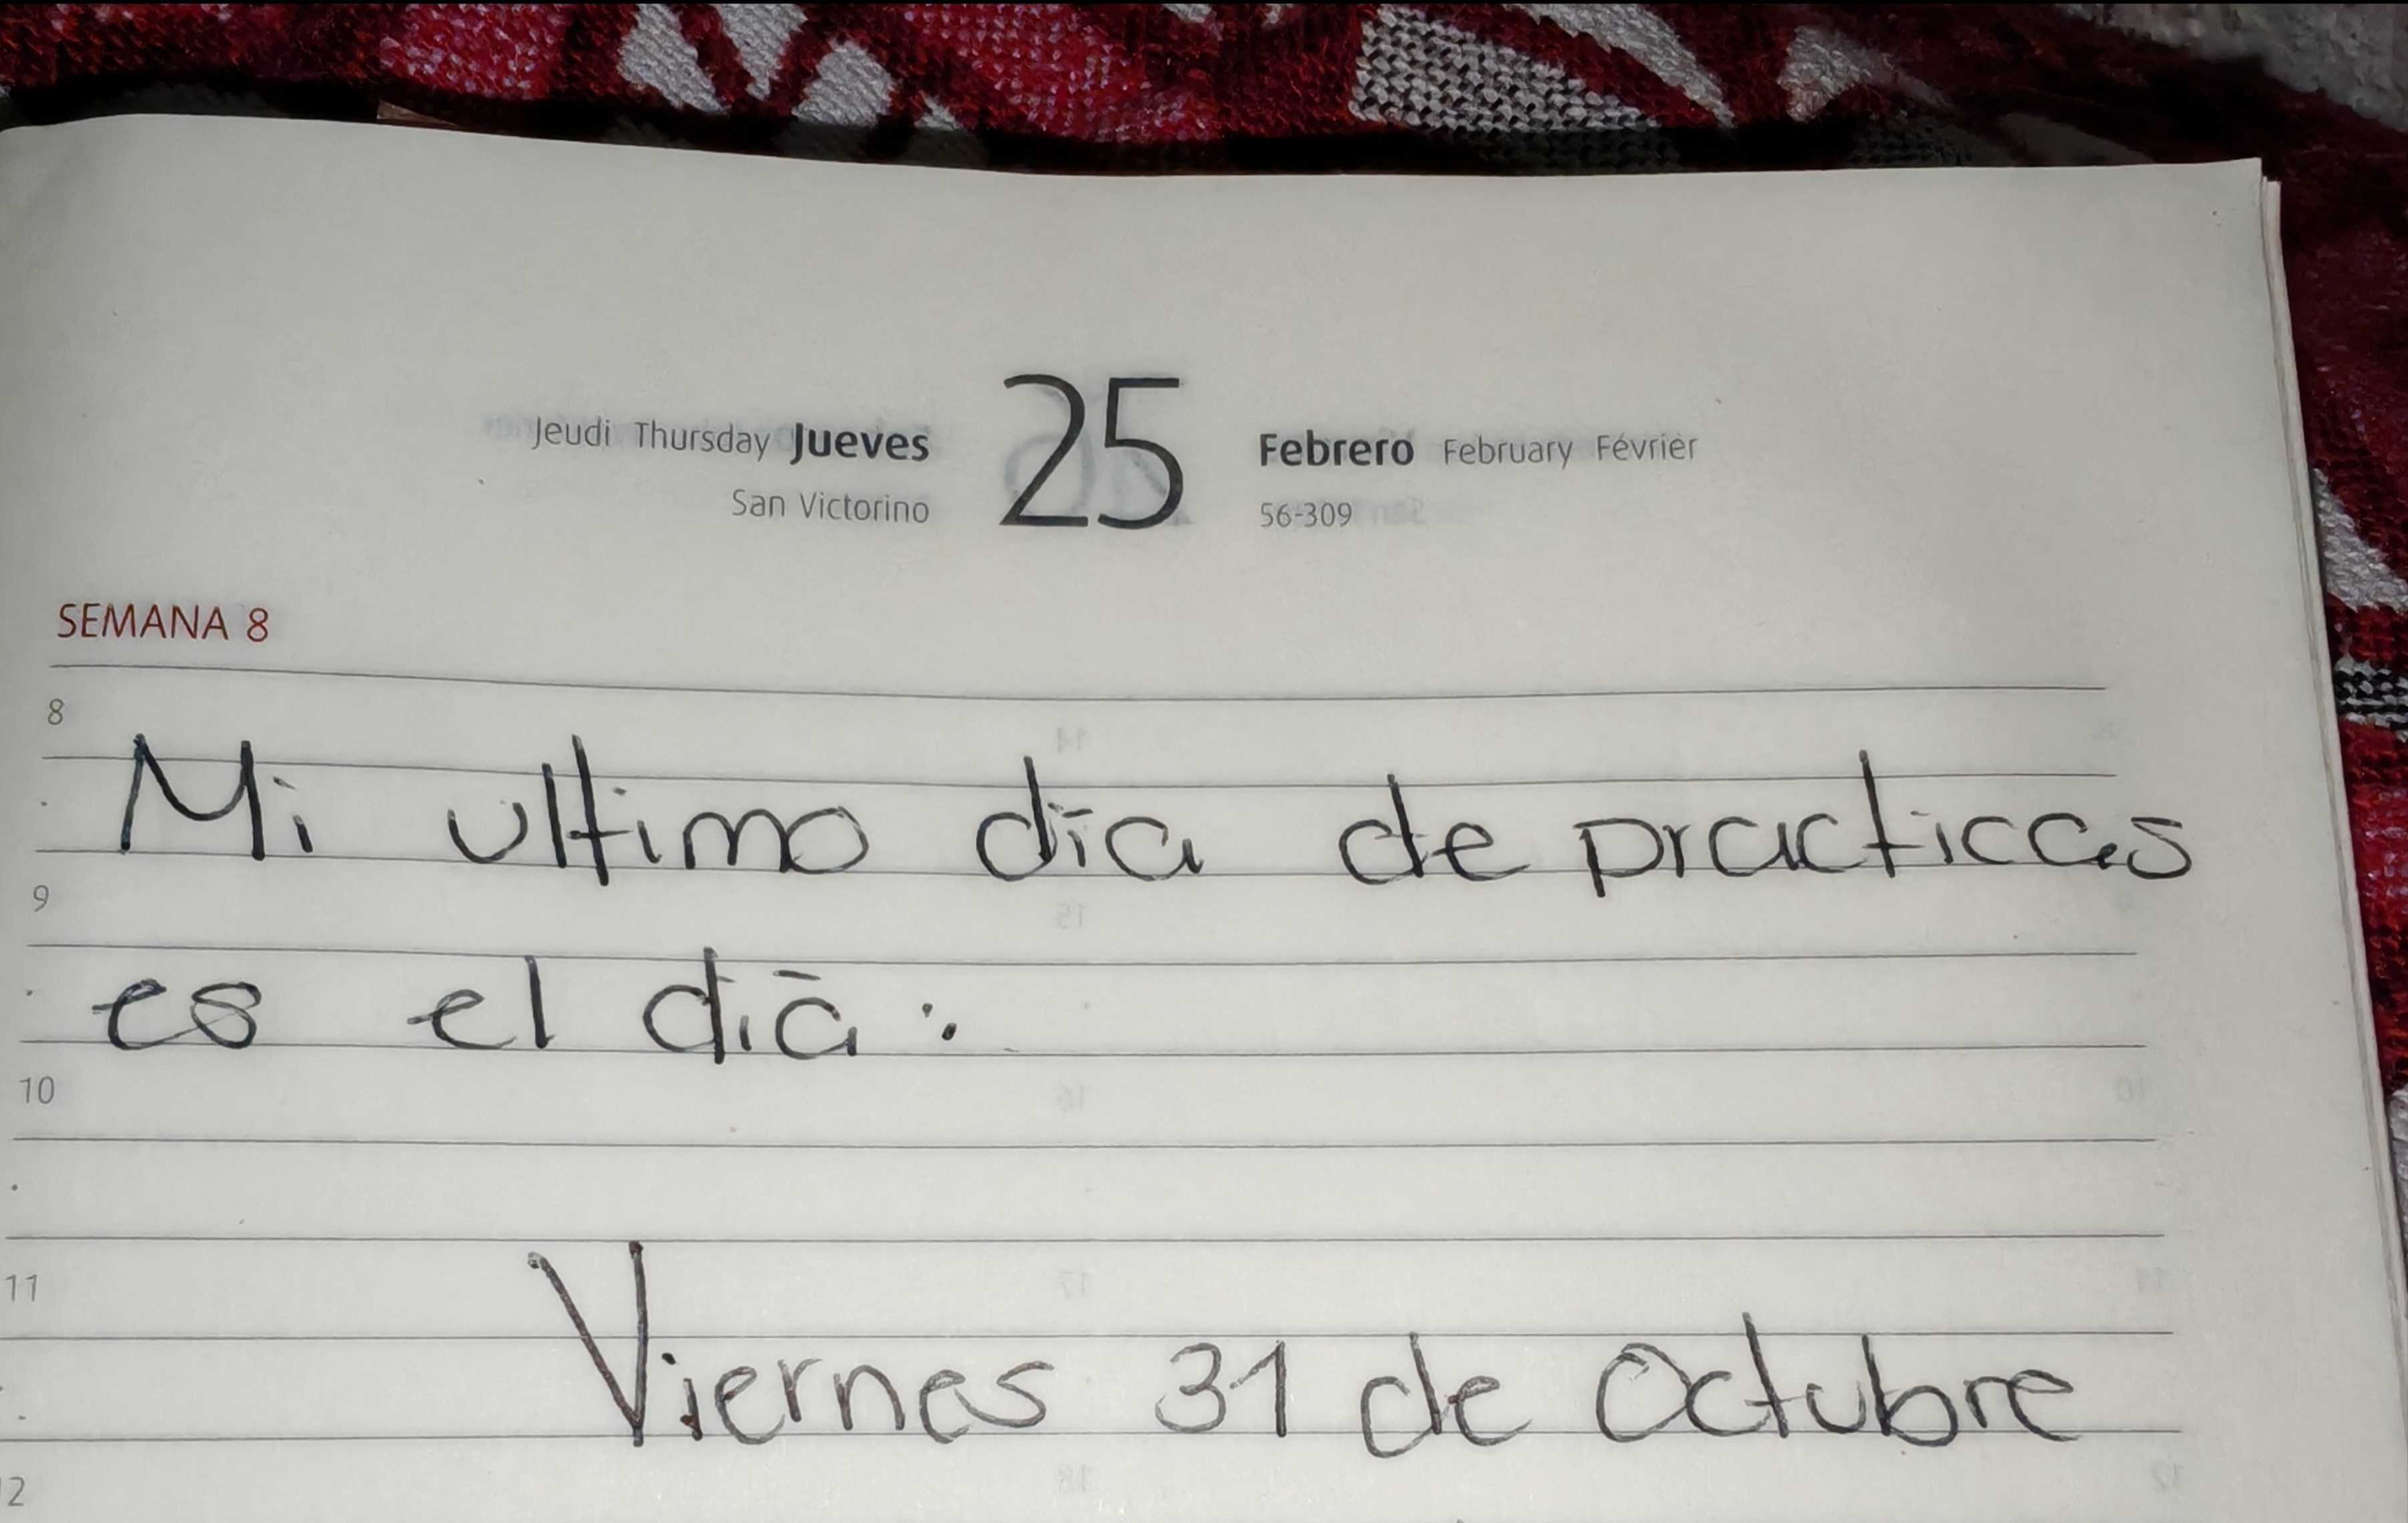 Jeudi Thursday Jueves 25 Febrero February Février
San Victorino 56-309
SEMANA 8
8
Mi ultimo día de practicas
9
es el día :
10
11
Viernes 31 de Octubre
12